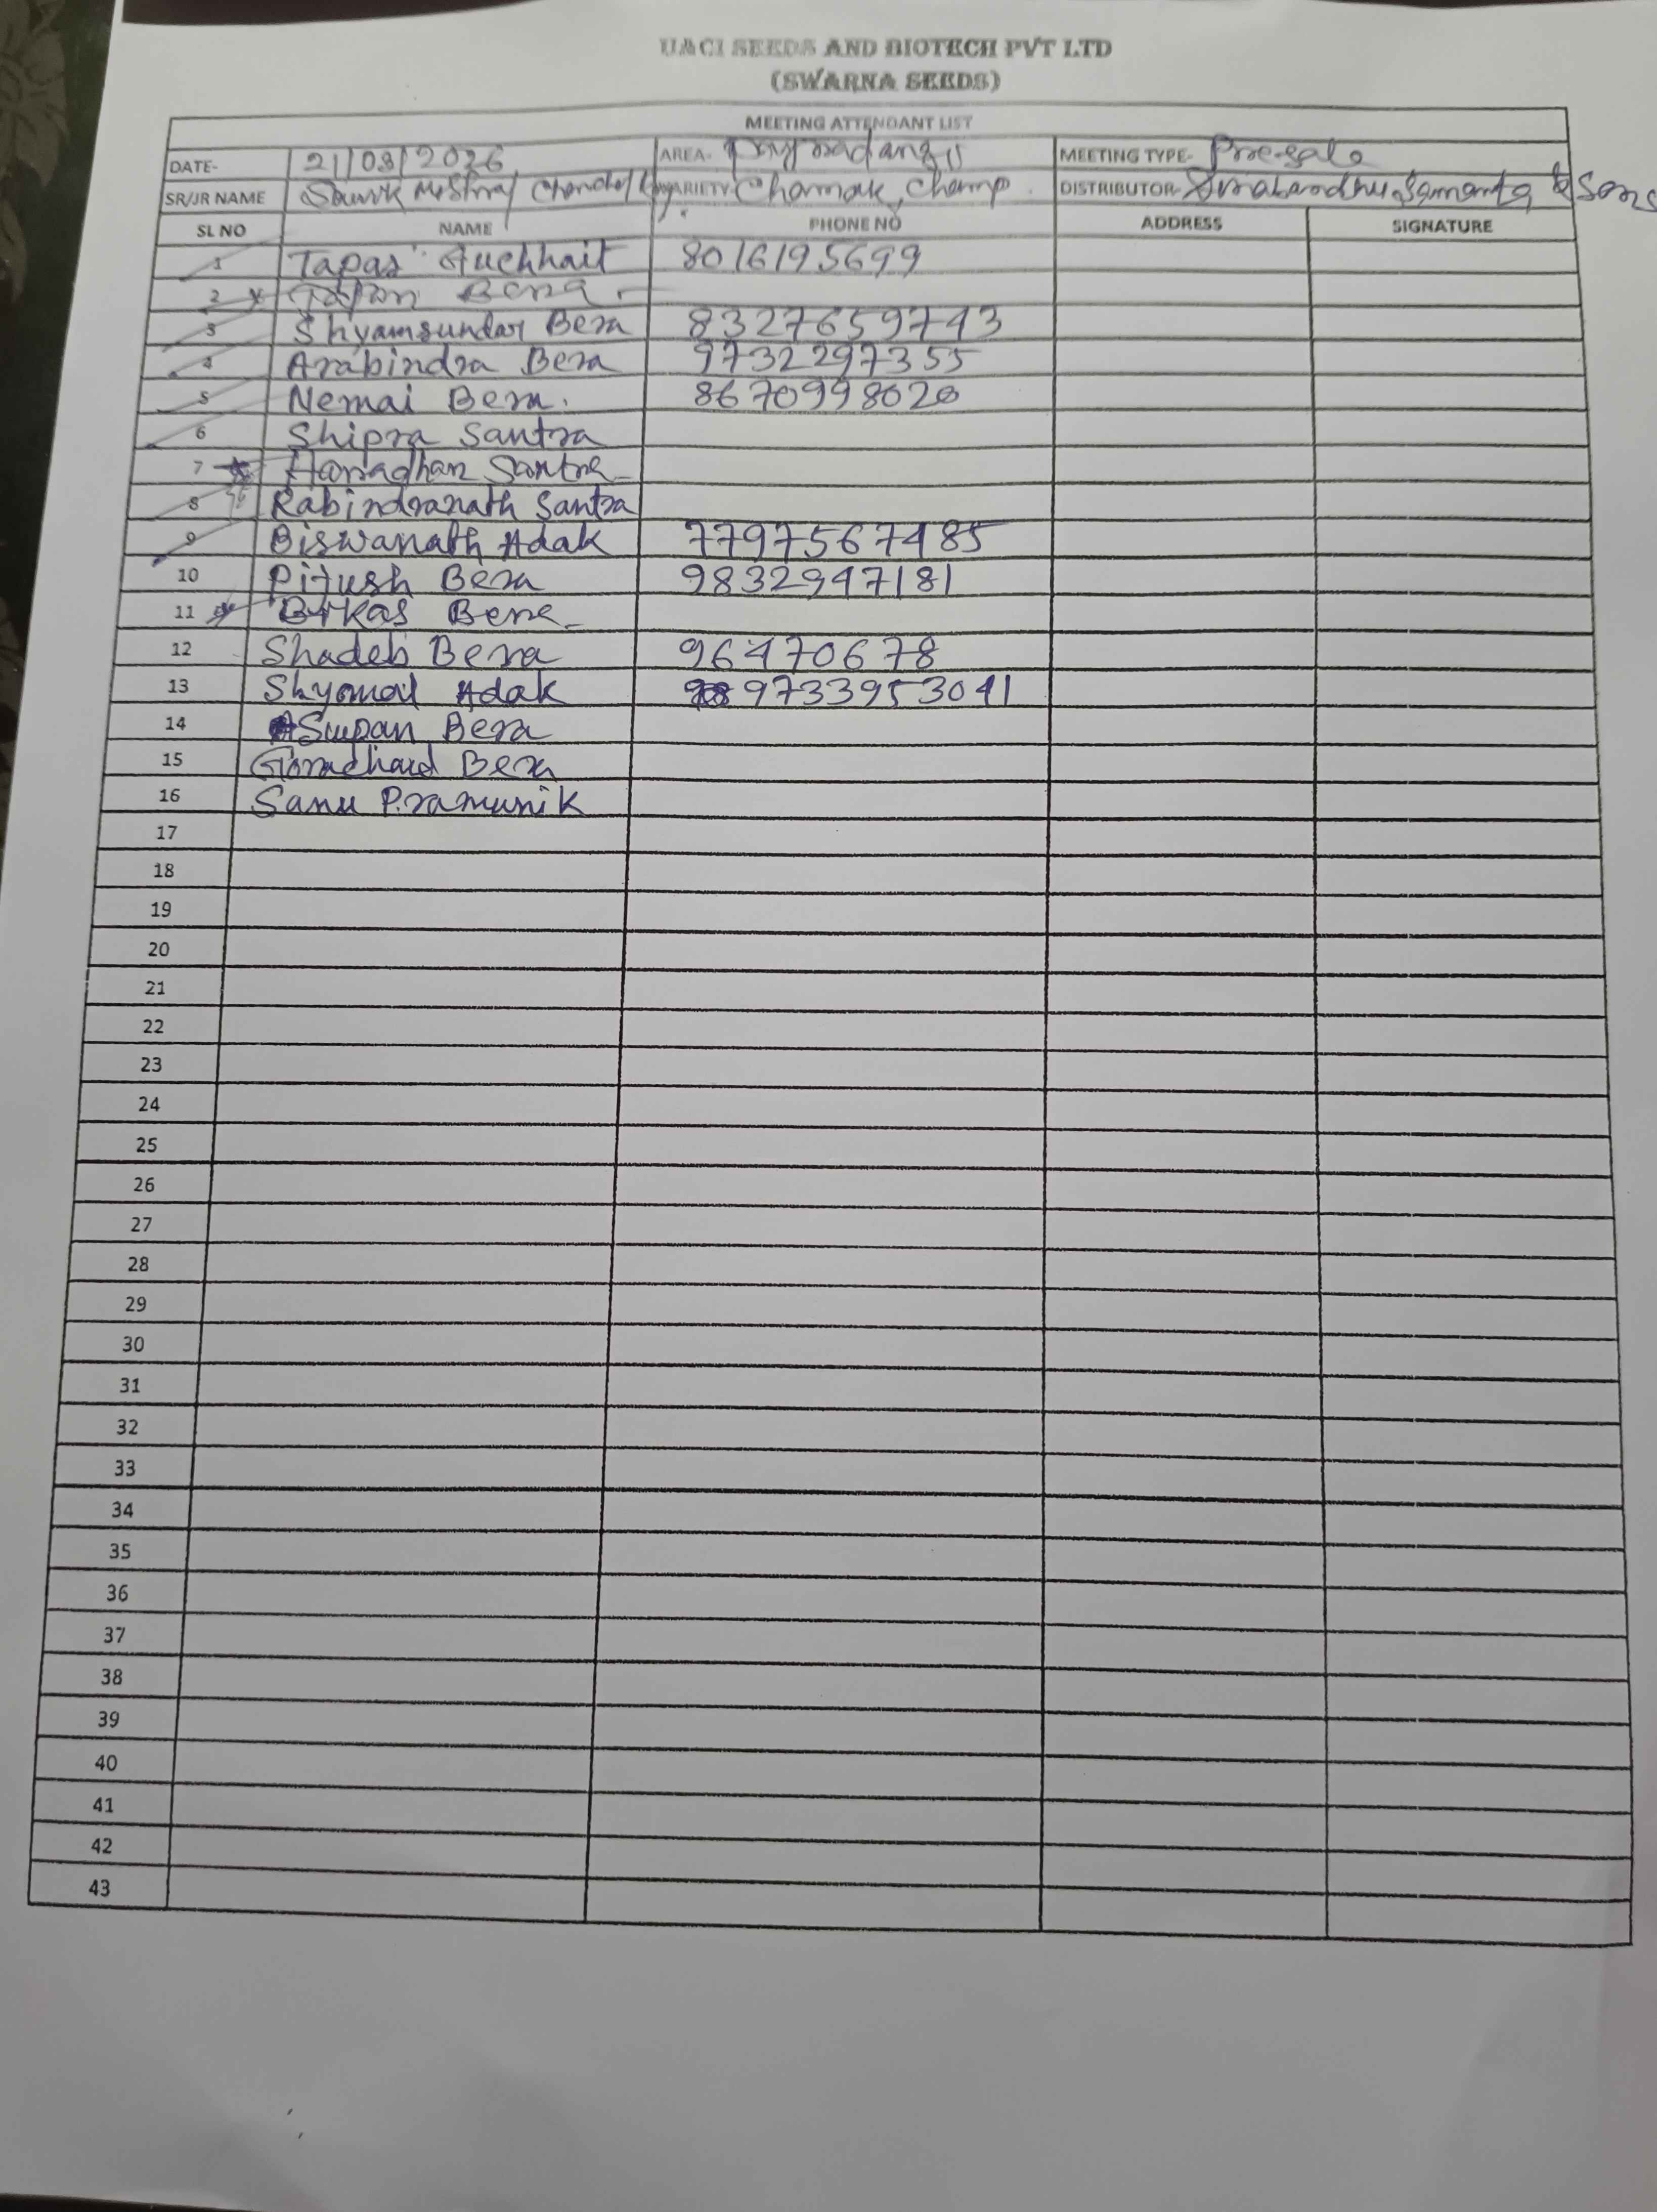 UACI SEEDS AND BIOTECH PVT LTD
(SWARNA SEEDS)
MEETING ATTENDANT LIST
DATE- 21/03/2026 AREA- MEETING TYPE- Pre-sale
SR/JR NAME VARIETY- Chamak, Champ. DISTRIBUTOR- Samanta & Sons
SL NO NAME PHONE NO ADDRESS SIGNATURE
1 Tapas Guchhait 8016195699
2 Bera
3 Shyamsundar Bera 8327659743
4 Arabindra Bera 9732297355
5 Nemai Bera. 8670998020
6 Shipra Santra
7 Haradhan Santra
8 Rabindranath Santra
9 Biswanath Adak 7797567485
10 Pijush Bera 9832947181
11 Bikas Bera
12 Shadeb Bera 96470678
13 Shyomal Adak 9733953041
14 Supan Bera
15 Gorachand Bera
16 Sanu Pramunik
17
18
19
20
21
22
23
24
25
26
27
28
29
30
31
32
33
34
35
36
37
38
39
40
41
42
43